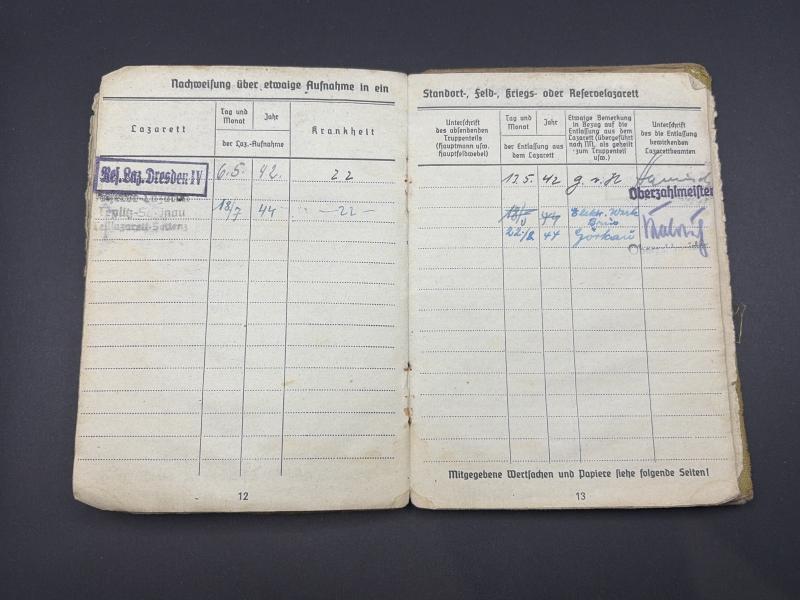 Nachweisung über etwaige Aufnahme in ein
Lazarett
Tag und Monat
Jahr
der Laz.-Aufnahme
Krankheit
Res. Laz. Dresden IV
6.5. 42. 22
Reserve-Lazarett
Teplitz-Schönau
Teillazarett-Settenz
18/7 44 - 22 -
12
Standort-, Feld-, Kriegs- oder Reservelazarett
Unterschrift
des absendenden
Truppenteils
(Hauptmann usw.
Hauptfeldwebel)
Tag und Monat
Jahr
der Entlassung aus
dem Lazarett
Etwaige Bemerkung
in Bezug auf die
Entlassung aus dem
Lazarett (übergeführt
nach NN, als geheilt
zum Truppenteil
usw.)
Unterschrift
des die Entlassung
bewirkenden
Lazarettbeamten
13.5. 42 g.v.H
Oberzahlmeister
18/8 44 Elektr. Werk
22./8 44 Görkau
Mitgegebene Wertsachen und Papiere siehe folgende Seiten!
13